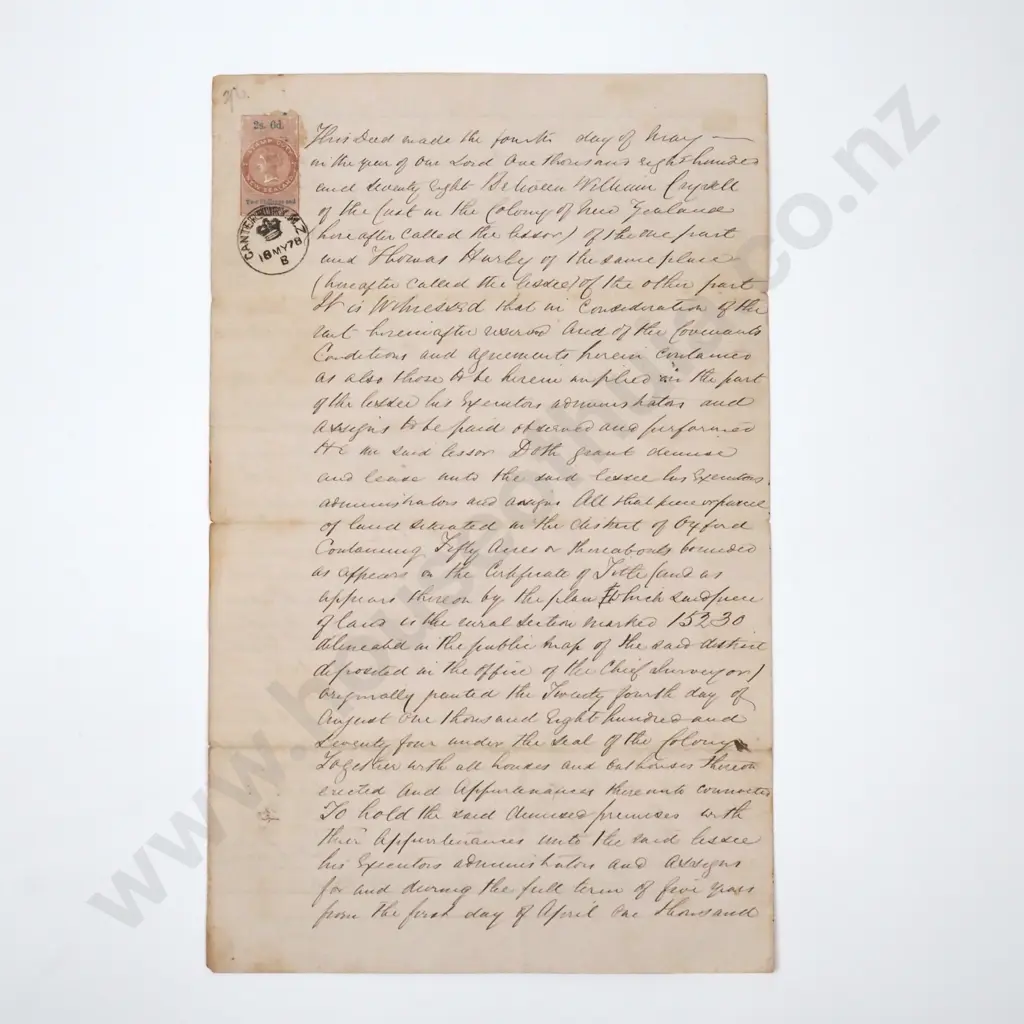 2s. 6d.
NEW ZEALAND
CANTERBURY N.Z
18 MY 78
B
This Deed made the fourth day of May —
in the year of our Lord One thousand eight hundred
and Seventy eight Between William
of the Cust in the Colony of New Zealand
(hereafter called the lessor) of the one part
and Thomas Hurby of the same place
(hereafter called the lessee) of the other part
It is Witnessed that in Consideration of the
rent hereinafter reserved and of the Covenants
Conditions and agreements herein contained
as also those to be herein implied on the part
of the lessee his Executors administrators and
assigns to be paid observed and performed
He the said lessor Doth grant demise
and lease unto the said lessee his Executors
administrators and assigns All that piece or parcel
of land situated in the district of Oxford
Containing Fifty Acres or thereabouts bounded
as appears on the Certificate of Title (and as
appears thereon by the plan which said piece
of land is the rural section marked 15230
delineated in the public map of the said district
deposited in the office of the Chief Surveyor)
Originally granted the Twenty fourth day of
August One thousand Eight hundred and
Seventy four under the seal of the Colony
Together with all houses and outhouses thereon
erected and Appurtenances thereunto connected
To hold the said demised premises with
their appurtenances unto the said lessee
his Executors administrators and assigns
for and during the full term of five years
from the first day of April One thousand